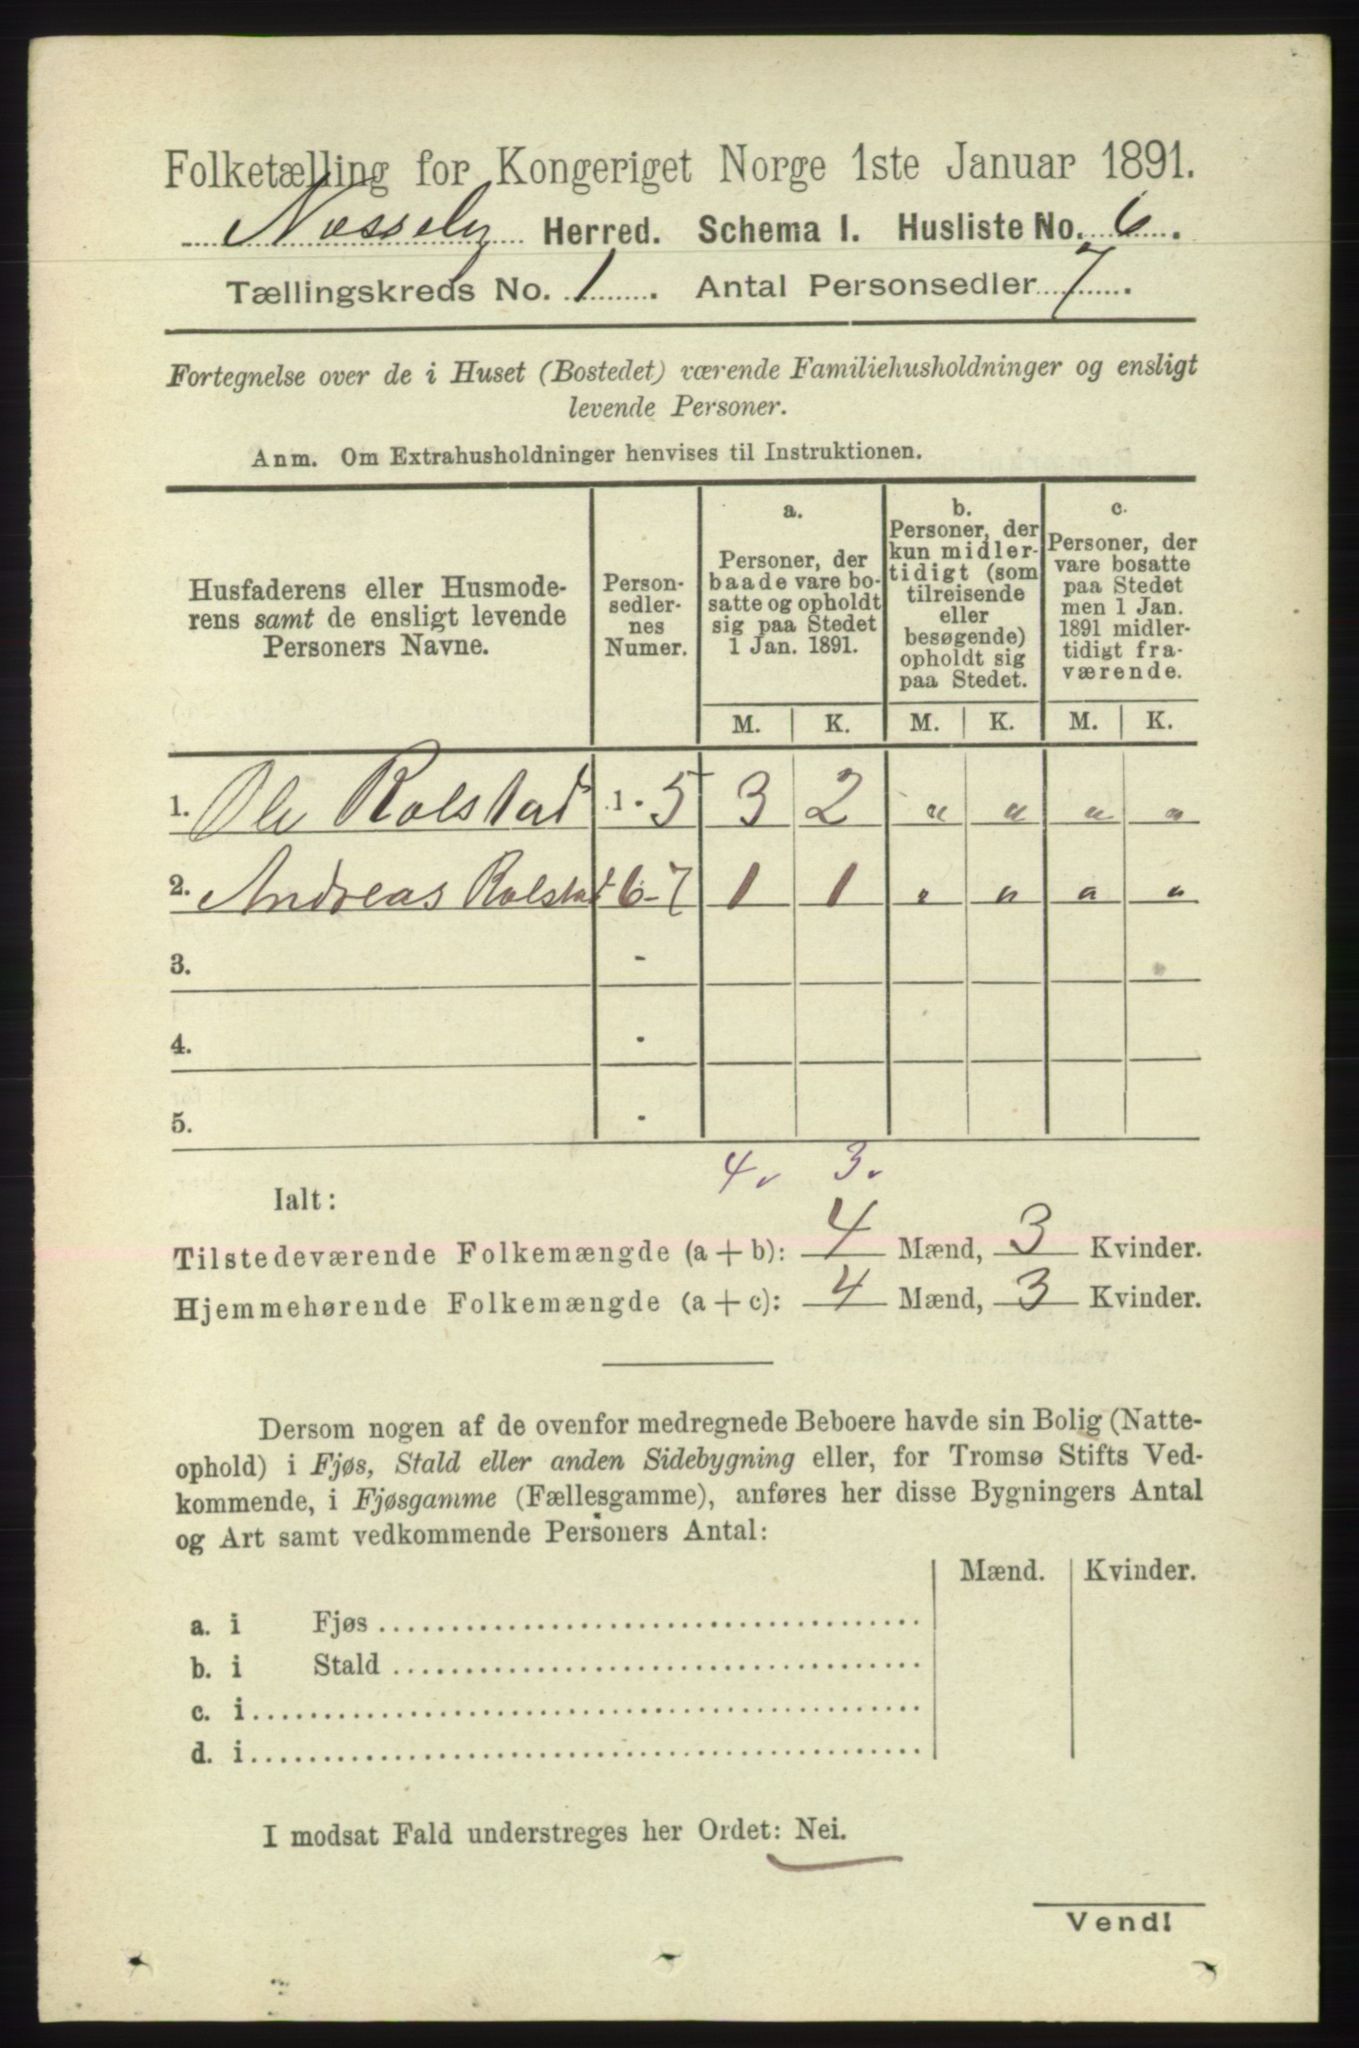 Folketælling for Kongeriget Norge 1ste Januar 1891.
Næsseby Herred. Schema I. Husliste No. 6.
Tællingskreds No. 1. Antal Personsedler 7.
Fortegnelse over de i Huset (Bostedet) værende Familiehusholdninger og ensligt
levende Personer.
Anm. Om Extrahusholdninger henvises til Instruktionen.
Husfaderens eller Husmode-
rens samt de ensligt levende
Personers Navne.
Person-
sedler-
nes
Numer.
a.
Personer, der
baade vare bo-
satte og opholdt
sig paa Stedet
1 Jan. 1891.
b.
Personer, der
kun midler-
tidigt (som
tilreisende
eller
besøgende)
opholdt sig
paa Stedet.
c.
Personer, der
vare bosatte
paa Stedet
men 1 Jan.
1891 midler-
tidigt fra-
værende.
M. K. M. K. M. K.
1. Ole Rolstad 1 - 5 3 2 " " " "
2. Andreas Rolstad 6 - 7 1 1 " " " "
3. -
4. -
5. -
4. 3.
Ialt:
Tilstedeværende Folkemængde (a + b): 4 Mænd, 3 Kvinder.
Hjemmehørende Folkemængde (a + c): 4 Mænd, 3 Kvinder.
Dersom nogen af de ovenfor medregnede Beboere havde sin Bolig (Natte-
ophold) i Fjøs, Stald eller anden Sidebygning eller, for Tromsø Stifts Ved-
kommende, i Fjøsgamme (Fællesgamme), anføres her disse Bygningers Antal
og Art samt vedkommende Personers Antal:
Mænd. Kvinder.
a. i Fjøs
b. i Stald
c. i
d. i
I modsat Fald understreges her Ordet: Nei.
Vend!